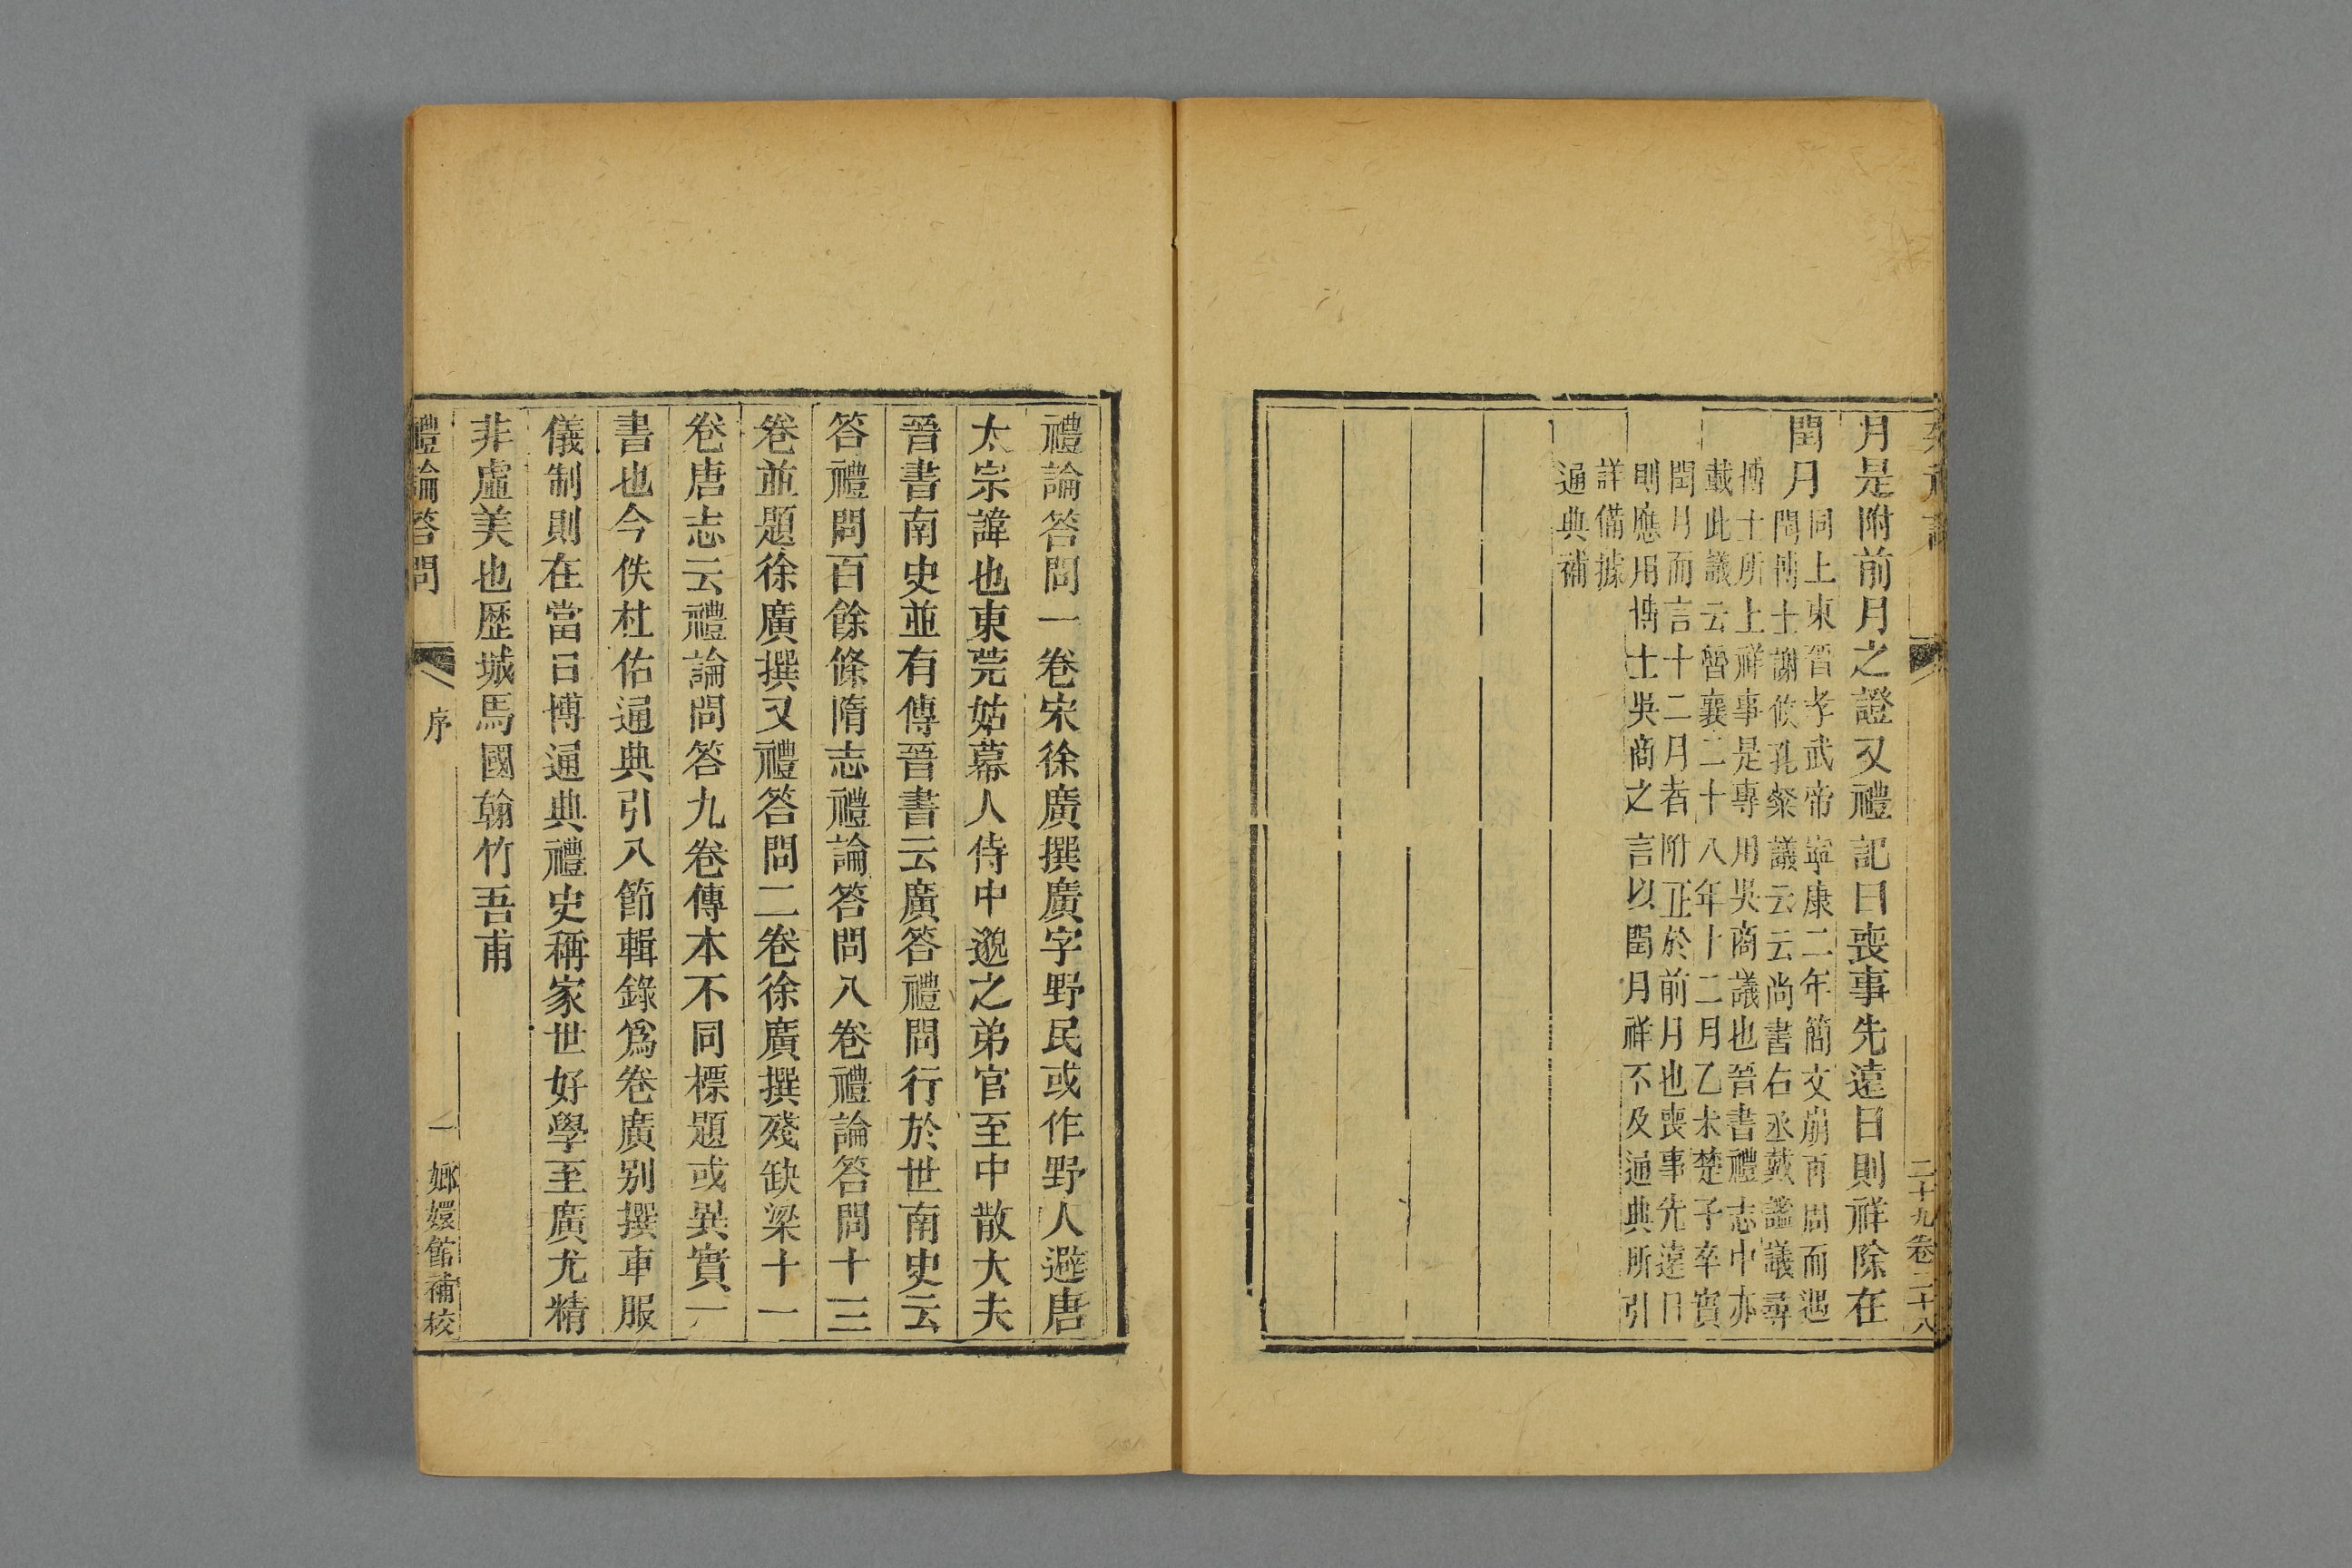 二十九卷二十八
月是附前月之證又禮記曰喪事先遠日則祥除在
閏月
同上東晉孝武帝寧康二年簡文崩再周而遇
閏博士謝攸孔粲議云云尚書右丞戴謐議尋
博士所上祥事是專用吳商議也晉書禮志中亦
載此議云魯襄二十八年十二月乙未楚子卒實
閏月而言十二月者附正於前月也喪事先遠日
則應用博士吳商之言以閏月祥不及通典所引
詳備據
通典補
禮論答問一卷宋徐廣撰廣字野民或作野人避唐
太宗諱也東莞姑幕人侍中邈之弟官至中散大夫
晉書南史並有傳晉書云廣答禮問行於世南史云
答禮問百餘條隋志禮論答問八卷禮論答問十三
卷並題徐廣撰又禮答問二卷徐廣撰殘缺梁十一
卷唐志云禮論問答九卷傳本不同標題或異實一
書也今佚杜佑通典引八節輯錄爲卷廣別撰車服
儀制則在當日博通典禮史稱家世好學至廣尤精
非虛美也歷城馬國翰竹吾甫
禮論答問 序 一 嫏嬛館補校